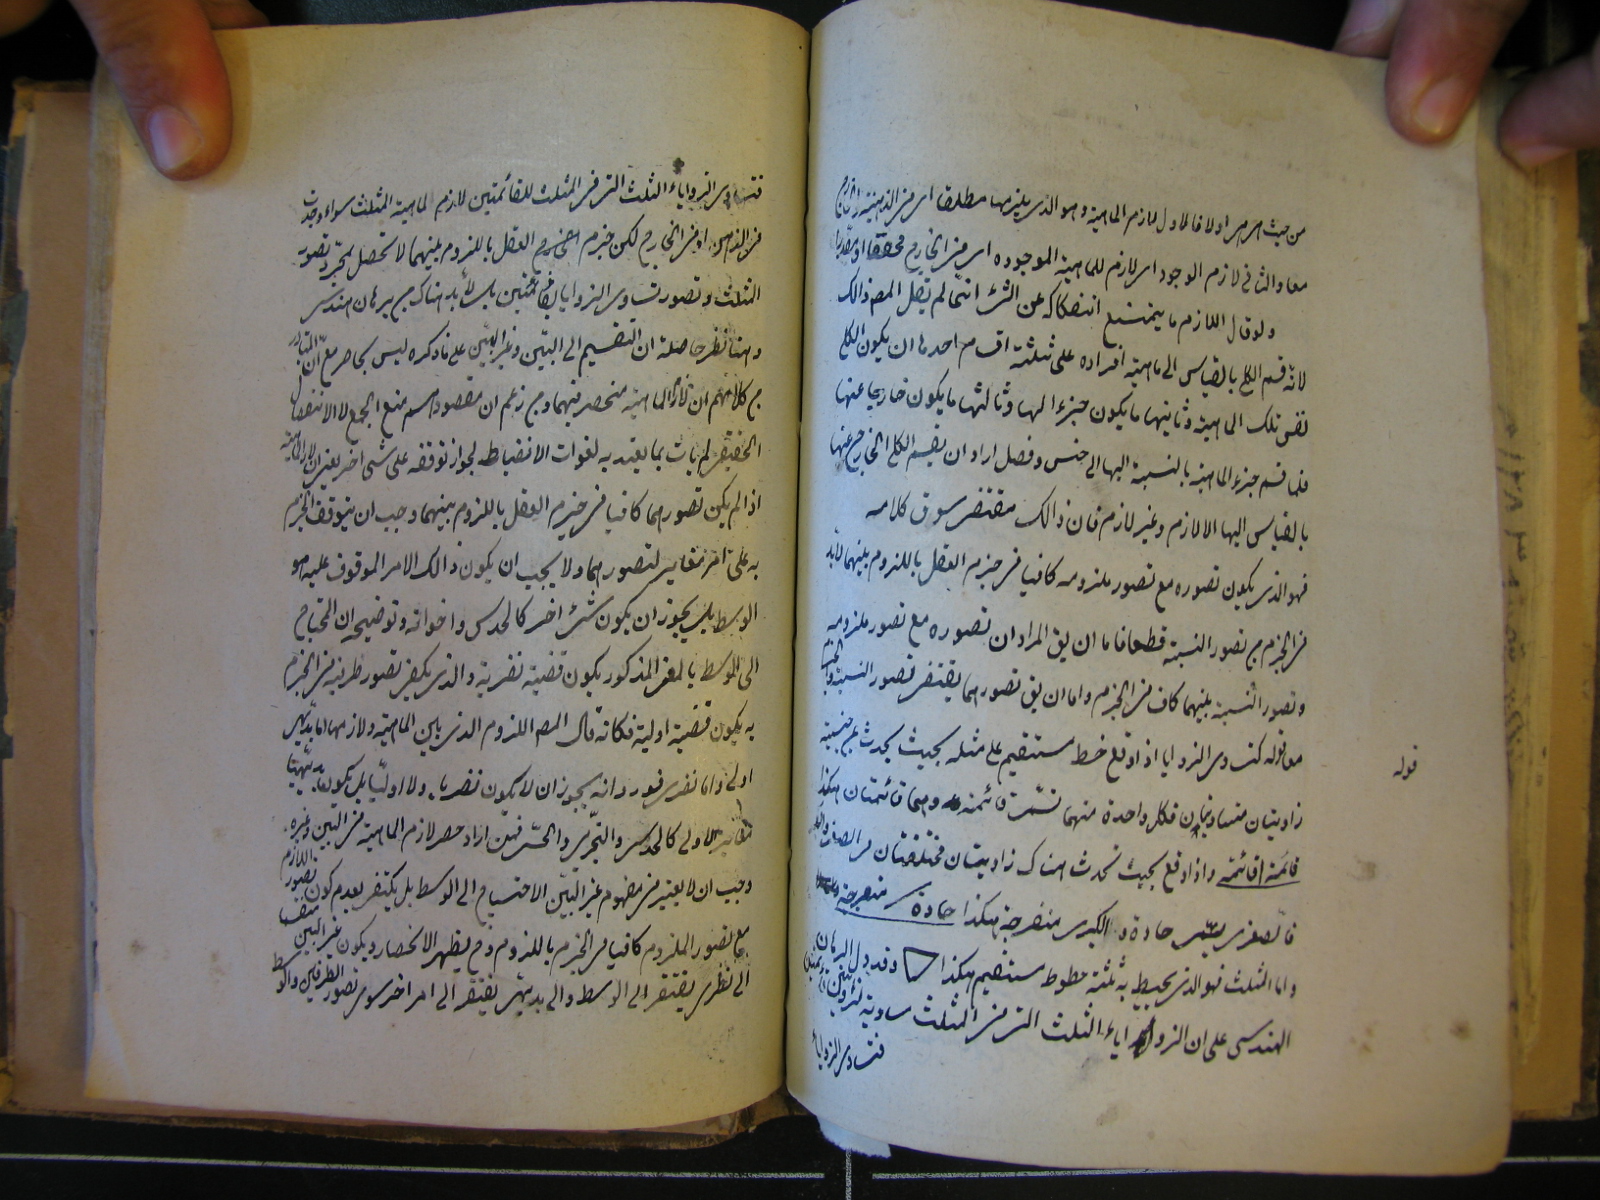 من حيث هي هي اولا فالاول لازم الماهية وهو الذي يلزمها مطلقا اي في الذهنية والخارج
معا والثاني لازم الوجود اي لازم للماهية الموجودة اي في الخارج محققا او مقدرا
ولو قال اللازم ما يمتنع انفكاكه عن الشيء انما لم يقل المص ذالك
لانه قسم الكلي بالقياس الى ماهية افراده على ثلثة اقسام احدها ان يكون الكلي
نفس تلك الماهية وثانيها ما يكون جزءا لها وثالثها ما يكون خارجا عنها
فلما قسم جزء الماهية بالنسبة اليها الى جنس وفصل اراد ان يقسم الكلي الخارج عنها
بالقياس اليها الا لازم وغير لازم فان ذالك مقتضى سوق كلامه
فهو الذي يكون تصوره مع تصور ملزومه كافيا في جزم العقل باللزوم بينهما لابد
في الجزم من تصور النسبة قطعا فاما ان يق المراد ان تصوره مع تصور ملزومه
وتصور النسبة بينهما كاف في الجزم واما ان يق تصورهما يقتضي تصور النسبة والجزم
معا قوله كتساوي الزوايا اذا وقع خط مستقيم على مثله بحيث يحدث عن جنبيه
زاويتان متساويتان فكل واحدة منهما تسمى قائمة وهما قائمتان هكذا
قائمة قائمة واذا وقع بحيث تحدث هناك زاويتان مختلفتان في الصغر والكبر
فالصغرى تسمى حادة والكبرى منفرجة هكذا حادة منفرجة
واما المثلث فهو الذي يحيط به ثلثة خطوط مستقيم هكذا وقد دل البرهان
الهندسي على ان الزوايا الثلث التي في المثلث مساوية لزاويتين قائمتين
فتساوي الزوايا
قوله
فتساوي الزوايا الثلث التي في المثلث للقائمتين لازم لماهية المثلث سواء وجدت
في الذهن او في الخارج لكن جزم العقل باللزوم بينهما لا تحصل بمجرد تصور
المثلث وتصور تساوي الزوايا بقائمتين بل لابد هناك من برهان هندسي
وهنا نظر حاصله ان التقسيم الى البين وغير البين على ما ذكره ليس بحاصر مع ان المتبادر
من كلامهم ان لازم الماهية منحصر فيهما ومن زعم ان مقصودهم منع الجمع لا الانفصال
الحقيقي لم يات بما يعتد به لفوات الانضباط لجواز توقفه على شيء اخر يعني ان لازم الماهية
اذا لم يكن تصورهما كافيا في جزم العقل باللزوم بينهما وجب ان يتوقف الجزم
به على امر مغاير لتصورهما ولا يجب ان يكون ذالك الامر الموقوف عليه هو
الوسط بل يجوز ان يكون شيء اخر كالحدس واخواته وتوضيحه ان المحتاج
الى الوسط بالمعنى المذكور يكون قضية نظرية والذي يكفي تصور طرفيه في الجزم
به يكون قضية اولية فكانه قال المص اللزوم الذي بين الماهية ولازمها اما بديهي
اولي واما نظري فورد انه يجوز ان لا يكون نظريا ولا اوليا بل يكون بديهيا
مغاير الاولي كالحدس والتجربي والحسي فمن اراد حصر لازم الماهية في البين وغيره
وجب ان لا يعتبر في مفهوم غير البين الاحتياج الى الوسط بل يكتفي بعدم كون تصور اللازم
مع تصور الملزوم كافيا في الجزم باللزوم وح يظهر الانحصار ويكون غير البين منقسما
الى نظري يفتقر الى الوسط والى بديهي يفتقر الى امر اخر سوى تصور الطرفين والوسط